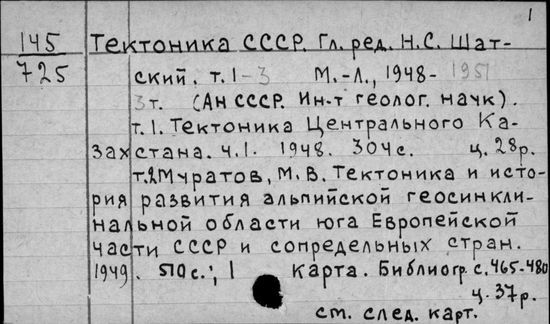 1
145 Тектоника СССР. Гл. ред. Н.С. Шат-
725 ский. т. 1-3 М.-Л., 1948-1951
3т. (Ан СССР. Ин-т геолог. наук).
т. 1. Тектоника Центрального Ка-
захстана. ч. 1. 1948. 304 с. ц. 28р.
т.2 Муратов, М. В. Тектоника и исто-
рия развития альпийской геосинкли-
нальной области юга Европейской
части СССР и сопредельных стран.
1949. 510 с.; 1 карта. Библиогр. с. 465-480
ц. 37р.
см. след. карт.